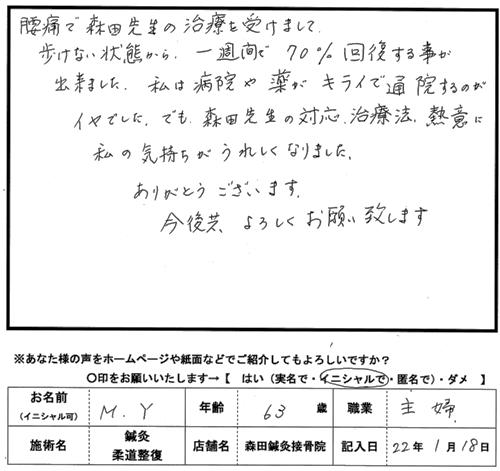 腰痛で森田先生の治療を受けまして
歩けない状態から、一週間で70%回復する事が
出来ました。私は病院や薬がキライで通院するのが
イヤでした。でも、森田先生の対応、治療法、熱意に
私の気持ちがうれしくなりました。
ありがとうございます。
今後共、よろしくお願い致します
※あなた様の声をホームページや紙面などでご紹介してもよろしいですか?
〇印をお願いいたします→【 はい(実名で・イニシャルで・匿名で)・ダメ 】
お名前(イニシャル可) M.Y 年齢 63歳 職業 主婦
施術名 鍼灸 柔道整復 店舗名 森田鍼灸接骨院 記入日 22年1月18日